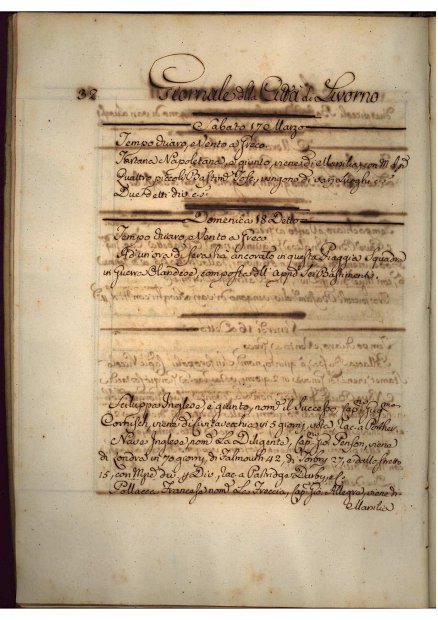 32 Giornale della Città di Livorno
Sabato 17 Marzo
Tempo chiaro, e Vento a freco.
Tartana Napoletana, e giunto, viene di Marsilia, con
Quattro piccoli Bastim Tose, vengono di varj Luoghi
Due detti
Domenica 18 Detto
Tempo chiaro, e Vento a freco
Ad un'ora di sera ha ancorato in questa Piaggia Squadra
in guerra Olandese, composta dell' app Sei Bastimenti.
Sciluppa Inglese, e giunto, nom il Successo, Cap
Cornisch, viene di Civitavecchia in 5 giorni, vota, rac. a Porther
Nave Inglese nom La Diligente, Cap Penson, viene
di Londra in 70 giorni, di Falmouth 42, di Torbay 27, e dallo stretto
15, con Mrie div, rac. a Patridge Darby, e C
Pollacca Francese nom La Treccia, Cap Gio Allegra, viene di
Marsilia